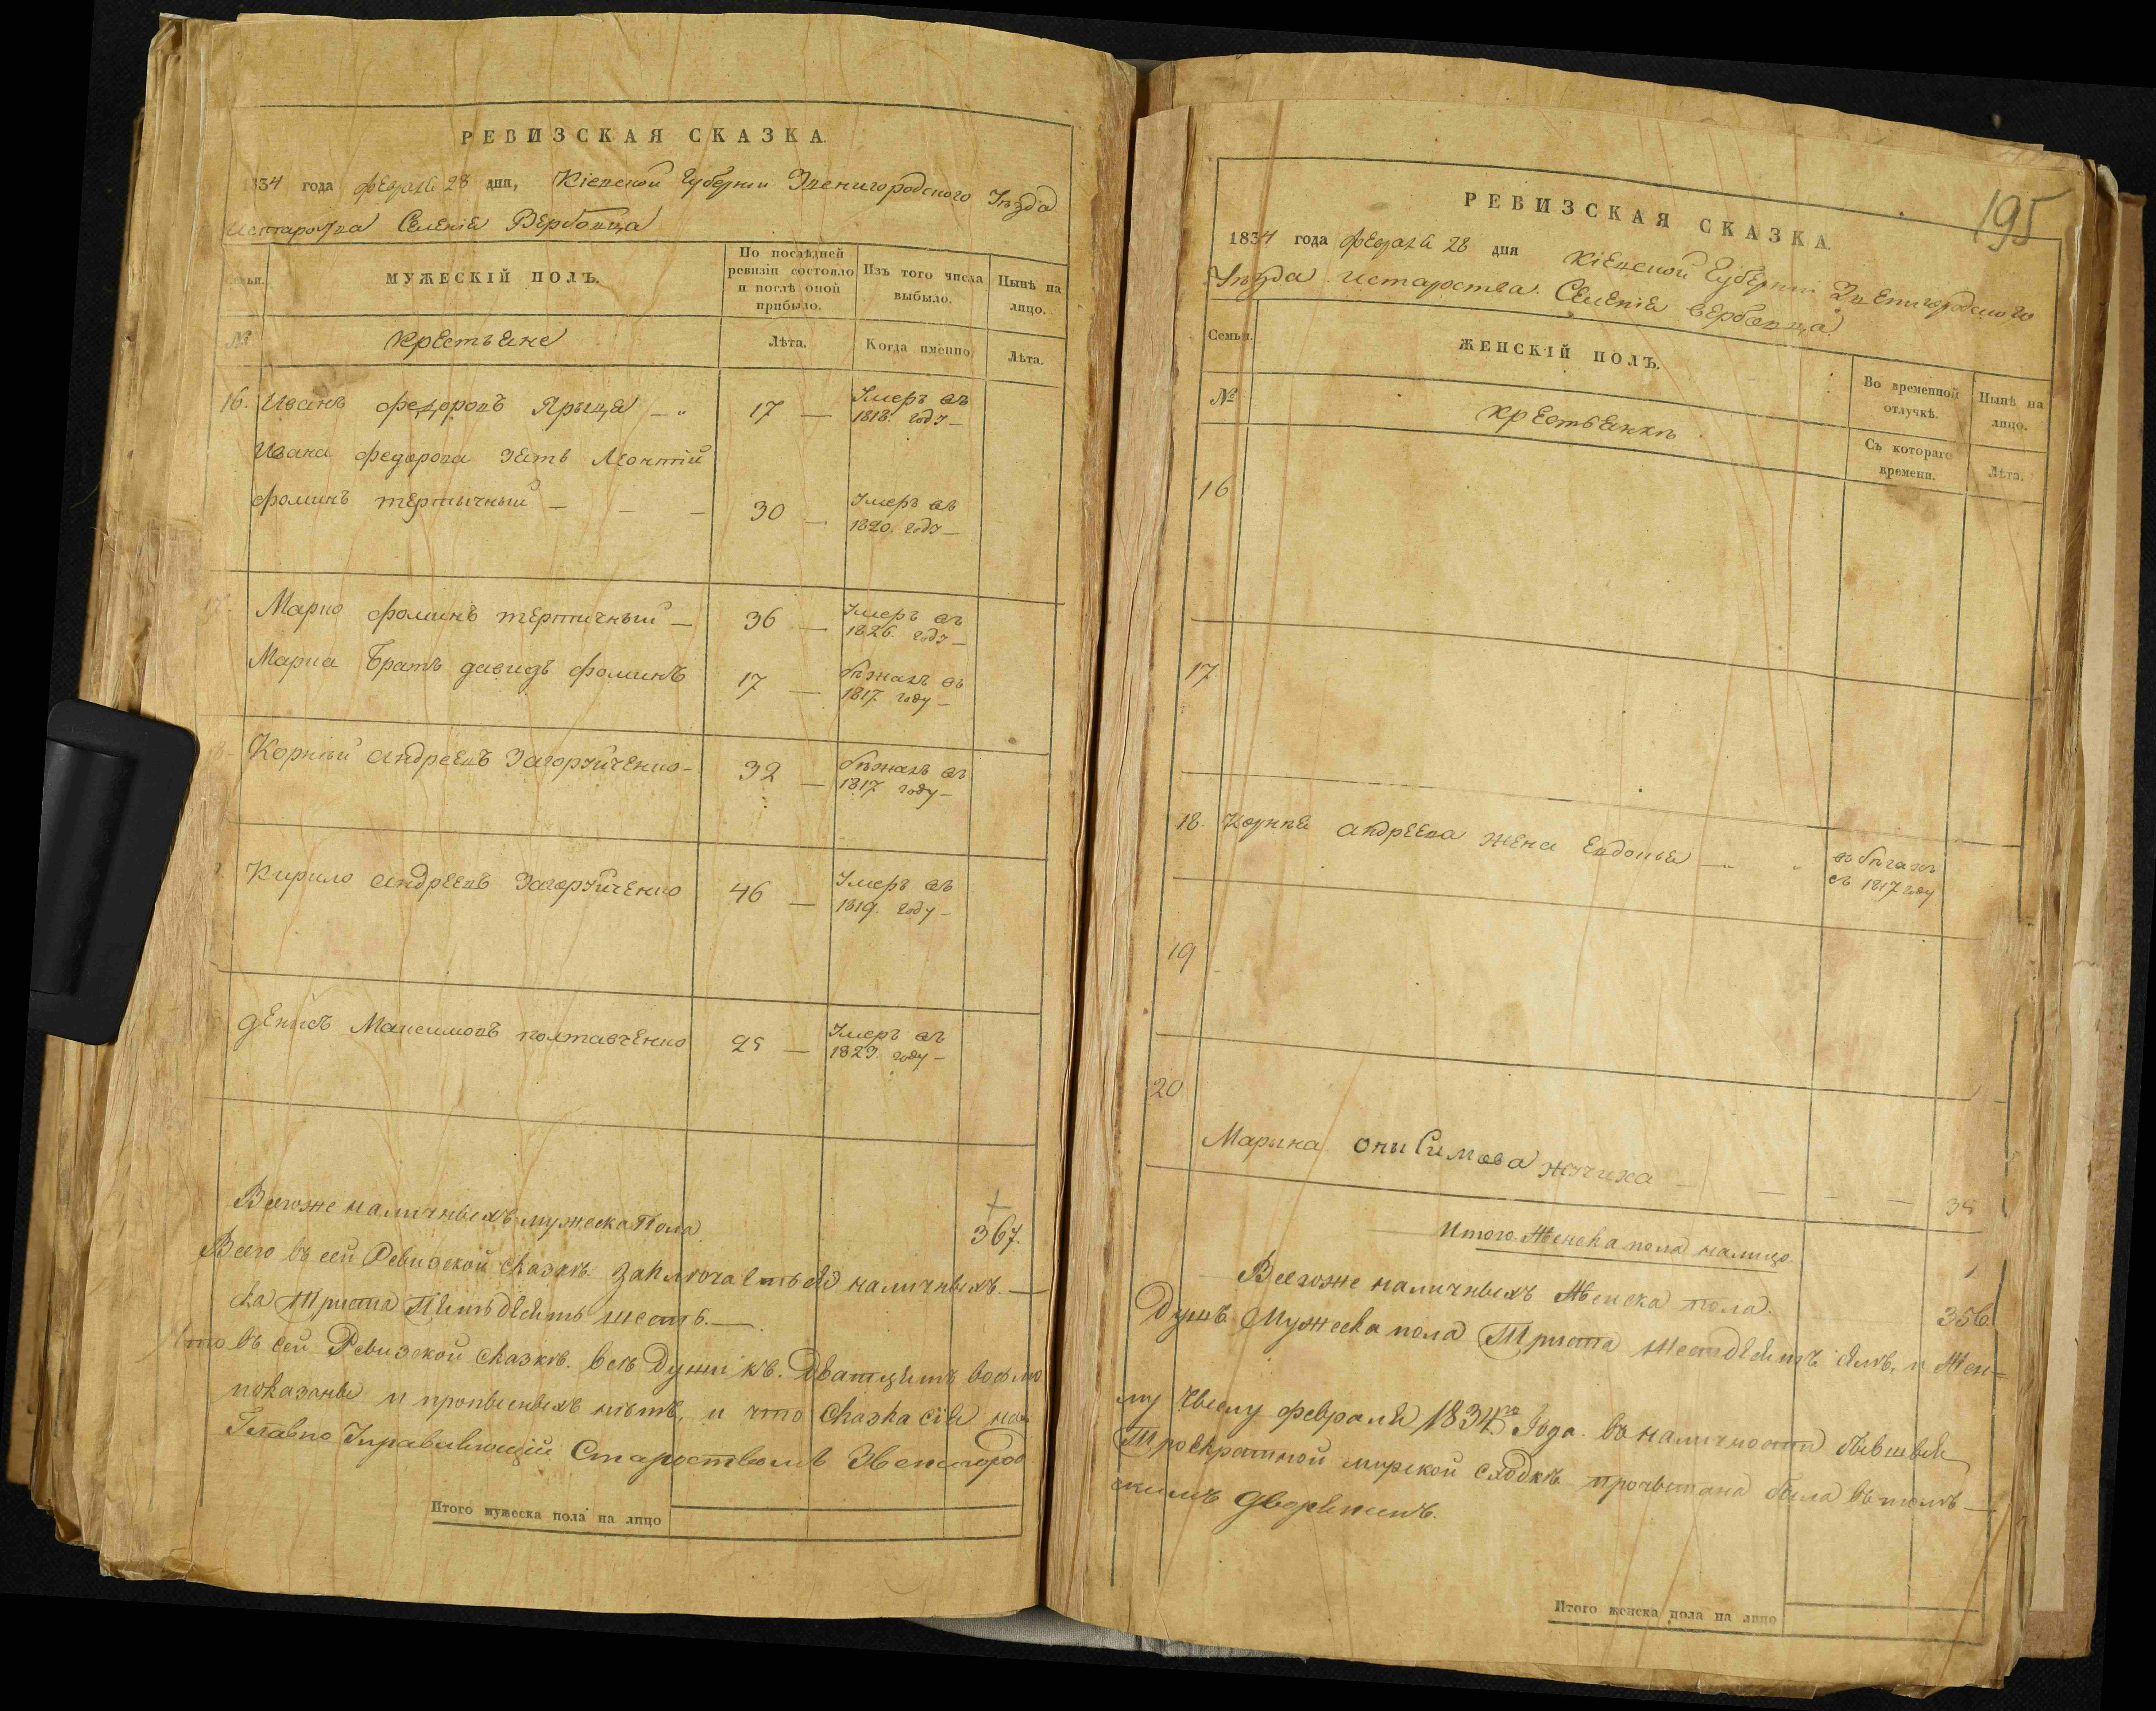 РЕВИЗСКАЯ СКАЗКА.
1834 года февраля 28 дня, Кіевской Губерніи Звенигородского Уѣзда
Истароства Селенія Вербовца
Семьи.
МУЖЕСКІЙ ПОЛЪ.
По послѣдней ревизіи состояло и послѣ оной прибыло.
Изъ того числа выбыло.
Нынѣ на лицо.
№
крестьяне
Лѣта.
Когда именно.
Лѣта.
16. Иванъ федоровъ Ярыца 17 Умеръ въ 1818. году
Ивана федорова зять Леонтій
фоминъ тертычный 30 Умеръ въ 1820. году
17. Марко фоминъ тертичный 36 Умеръ въ 1826. году
Марка братъ давидъ фоминъ 17 бѣжалъ въ 1817 году
18. Корнѣй андреевъ Загоруйченко 32 бѣжалъ въ 1817 году
Кирило андреевъ Загоруйченко 46 Умеръ въ 1819. году
денисъ Максимовъ полтавченко 25 Умеръ въ 1823. году
Всегоже наличныхъ мужеска Пола 367.
Всего въ сей Ревизской сказкѣ заключается наличныхъ.
ка Триста Пятьдесятъ шесть.
Что въ сей Ревизской сказкѣ. всѣ души къ. Дватцять восьмо
показаны и пропысныхъ нѣтъ, и что сказка сія на
Главно Управляющій Староствомъ Звенигород
Итого мужеска пола на лицо
195
РЕВИЗСКАЯ СКАЗКА.
1834 года февраля 28 дня Кіевской Губерніи Звенигородского
Уѣзда истароства. Селенія вербовца
Семьи.
ЖЕНСКІЙ ПОЛЪ.
Во временной отлучкѣ.
Нынѣ на лицо.
№
крестьянкѣ
Съ котораго времени.
Лѣта.
16
17
18. Корнѣя андреева жена Евдокія въ бѣгахъ съ 1817 году
19
20
Марына онысимова жучиха 35
Итого Женска пола налицо 1
Всегоже наличныхъ Женска пола. 356.
Душъ Мужеска пола Триста Шестдесятъ семъ, и Жен=
му Числу февраля 1834го Года. во наличности бывшей
Троекратной мирской сходкѣ прочытана была въ томъ
скимъ дворяниномъ.
Итого женска пола на лицо